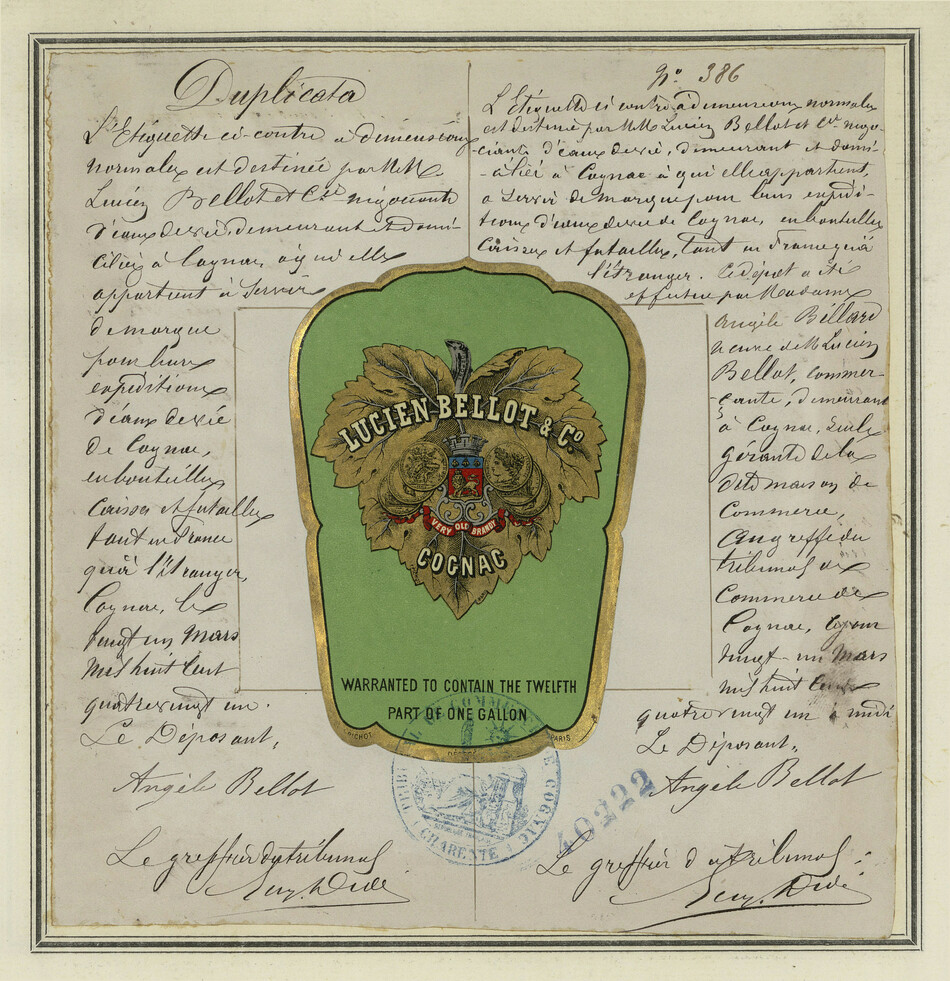 Duplicata
L'Etiquette ci-contre a dimensions
normales est destinée par MM.
Lucien Bellot et Cie négociants
d'eaux de vie demeurant et domi-
ciliés à Cognac, à qui elle
appartient à servir
de marque
pour leurs
expéditions
d'eaux de vie
de Cognac,
en bouteilles
caisses et futailles
tant en France
qu'à l'étranger,
Cognac, le
vingt un Mars
mil huit cent
quatre vingt un.
Le Déposant,
Angèle Bellot
Le greffier du tribunal
No 386
L'Etiquette ci contre à dimensions normales
est destinée par MM Lucien Bellot et Cie négo-
-ciants d'eaux de vie, demeurant et domi-
-ciliés à Cognac à qui elle appartient,
a servir de marque pour leurs expédi-
tions d'eaux de vie de Cognac, en bouteilles
caisses et futailles, tant en France qu'à
l'étranger. Ce dépôt a été
effectué par Madame
Angèle Billard
veuve de M Lucien
Bellot, commer-
-çante, demeurant
à Cognac, seule
gérante de la
dite maison de
Commerce,
au greffe du
tribunal de
Commerce de
Cognac, ce jour
vingt-un Mars
mil huit cent
quatre vingt un à midi
Le Déposant,
Angèle Bellot
Le greffier du tribunal:
LUCIEN BELLOT & Co
VERY OLD BRANDY
COGNAC
WARRANTED TO CONTAIN THE TWELFTH
PART OF ONE GALLON
PARIS
TRIBUNAL DE COMMERCE DE COGNAC
CHARENTE
40222